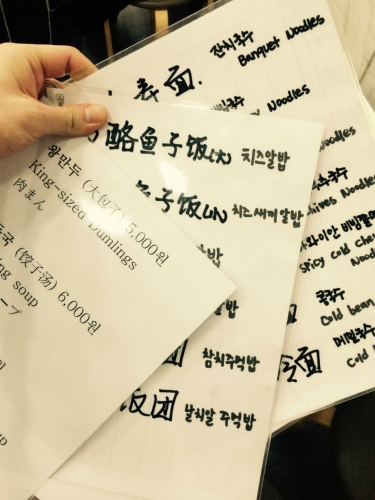 왕만두 (大包子) 5,000원
King-sized Dumlings
肉まん
국 (饺子汤) 6,000원
soup
ープ
酪鱼子饭(大) 치즈알밥
子饭(小) 치즈새끼알밥
밥
알밥
참치주먹밥
饭团 날치알 주먹밥
寿面.
잔치국수
Banquet Noodles
국수
Noodles
Noodles
국수
Chives Noodles
하와이안 비빔쫄면
spicy cold chewy
Noodles
콩국수
Cold bean
메밀국수
冷面 Cold